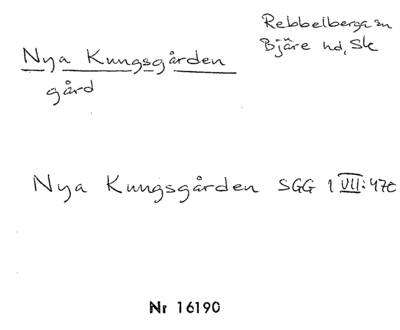 Rebbelberga sn
Nya Kungsgården
Bjäre hd, Sk
gård
Nya Kungsgården SGG 1 VII: 470
Nr 16190